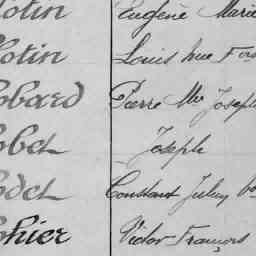 otin Eugène Marie
otin Louis
obard Pierre Mie Joseph
obet Joseph
odet Constant Jules
ohier Victor-François